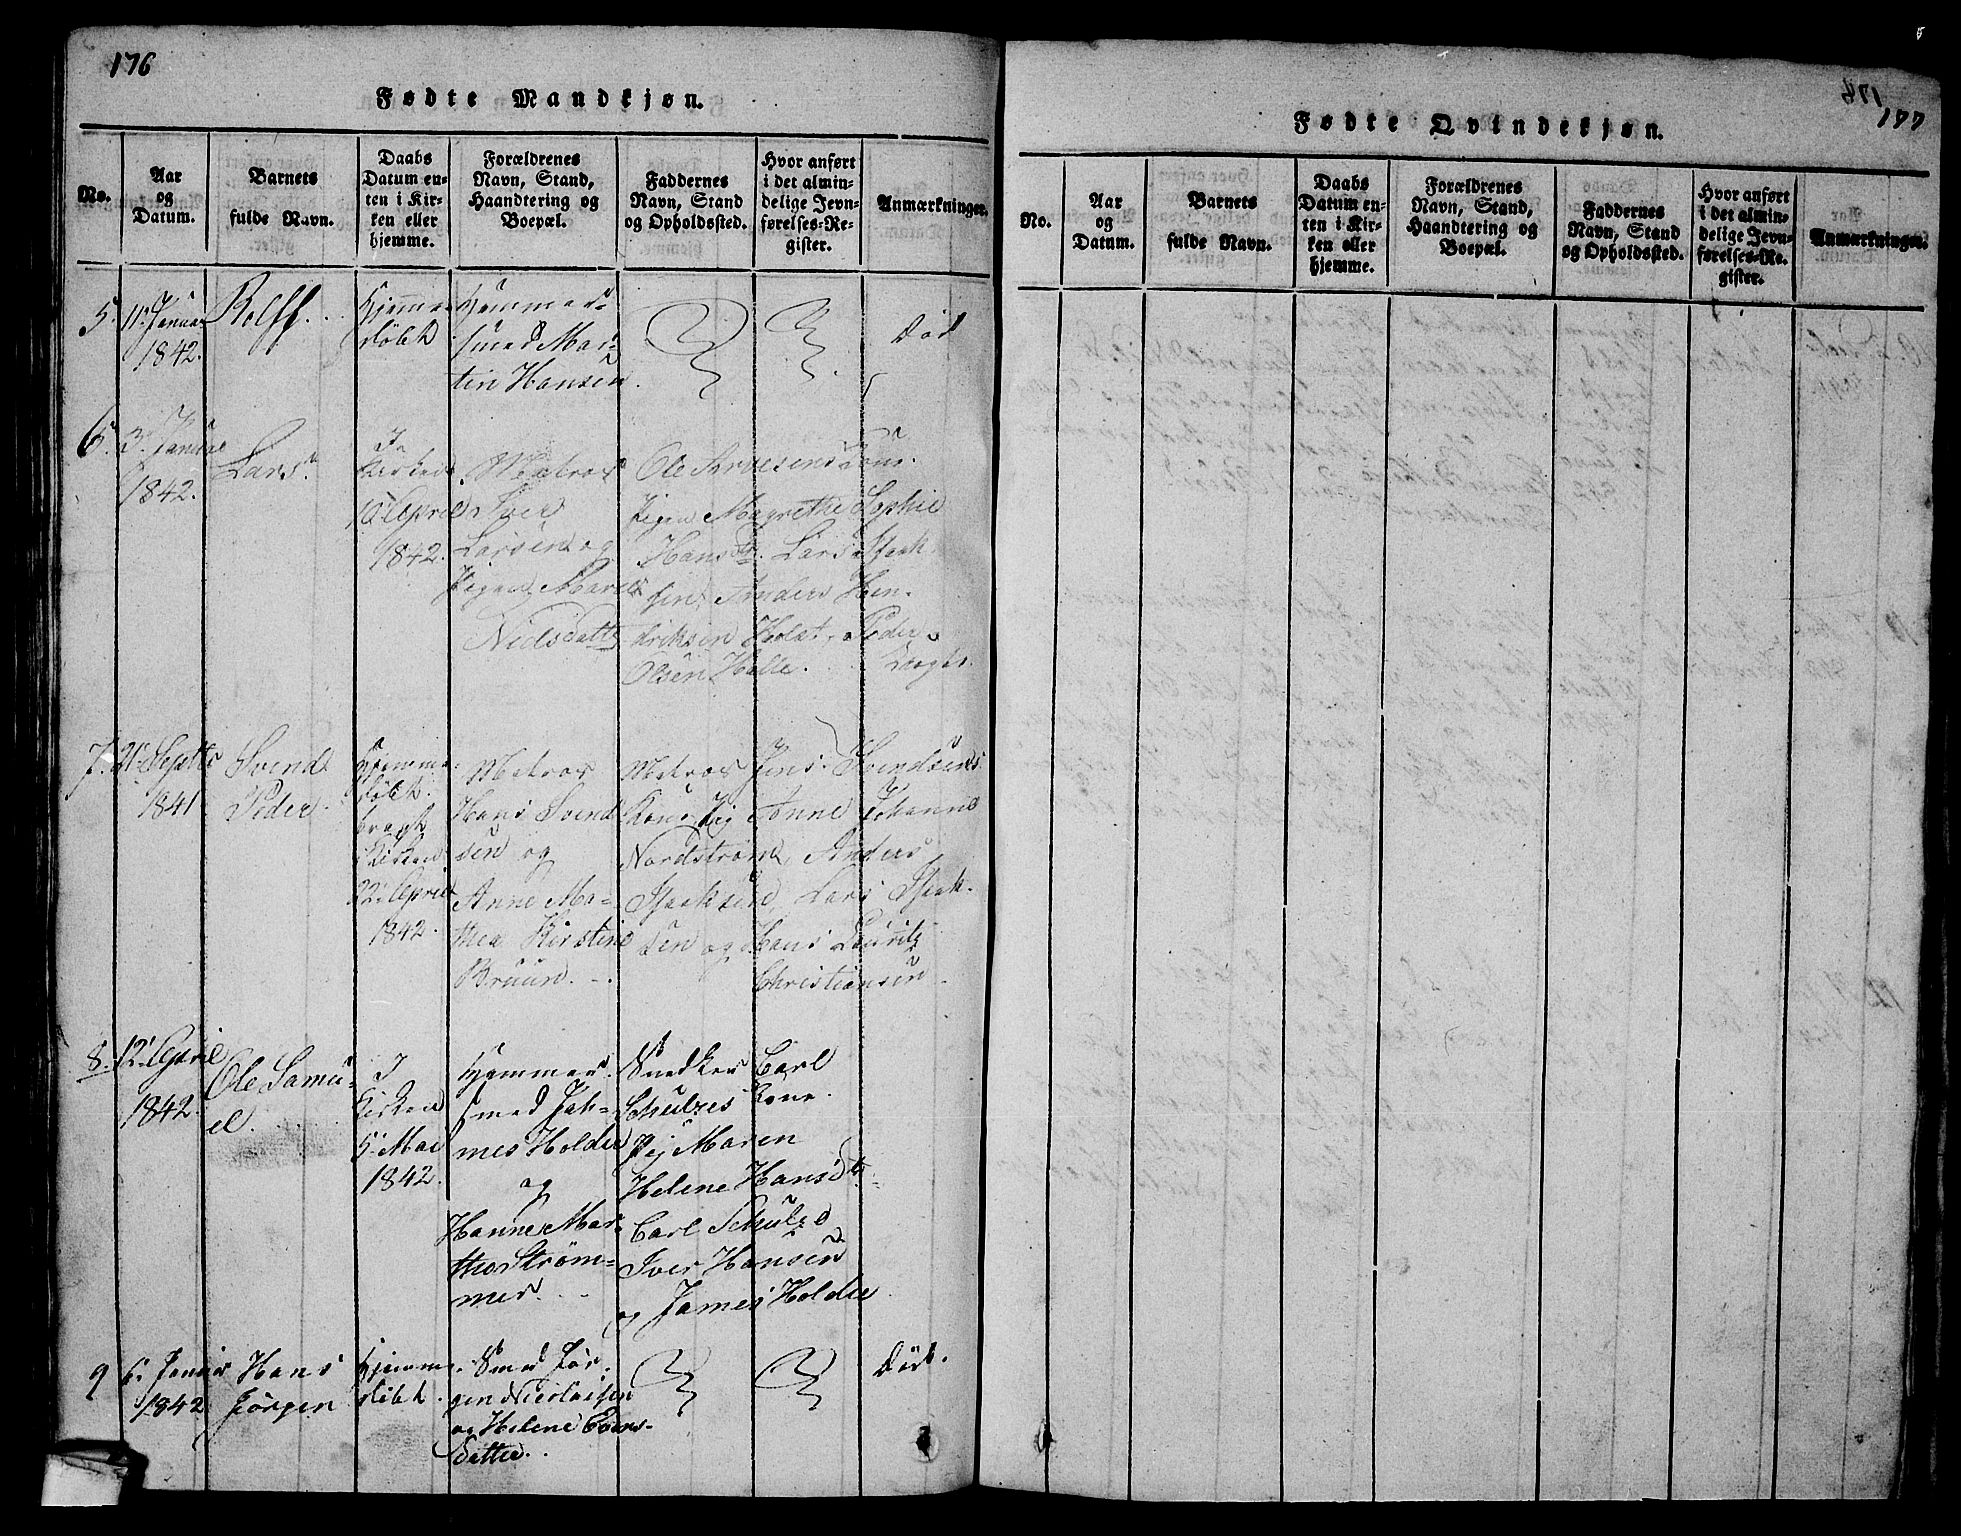 176
Fødte Mandkjøn.
No.
Aar
og
Datum.
Barnets
fulde Navn.
Daabs
Datum en-
ten i Kir-
ken eller
hjemme.
Forældrenes
Navn, Stand,
Haandtering og
Boepæl.
Faddernes
Navn, Stand
og Opholdssted.
Hvor anført
i det almin-
delige Jevn-
førelses-Re-
gister.
Anmærkninger.
5. 11 Januar
1842.
Rolff.
Hjemme
døbt
Hammer-
smed Mar-
tin Hansen.
Død
6. 3 Januar
1842.
Lars.
I
Kirken
10 April
1842.
Matros
Iver
Larsen og
Pigen Maren
Nielsdatter
Ole Arvesens Kone.
Pigen Magrethe Sophie
Hansdtr. Lars Isaak-
sen, Anders Hen-
driksen Holst, Peder
Olsen Halle.
7. 21 Septbr
1841
Svend
Peder.
Hjemme-
døbt.
bragt
i Kirken
22 April
1842.
Matros
Hans Svend
sen og
Anne Ma-
thea Kirstine
Bruun.
Matros Jens Svendsens
Kone, Pig Anne Johanne
Nordstrøm, Anders
Isaaksen, Lars Isaak-
sen og Hans Lauritz
Christiansen.
8. 12 April
1842.
Ole Samu-
el.
I
Kirken
5 Mai
1842.
Hammer-
smed Jah-
mes Holder
og
Hanne Mar-
thea Strøm-
mer.
Snedker Carl
Schulzes Kone.
Pig Maren
Helene Hansdtr.
Carl Schulze
Iver Hansen
og James Holder.
9 6 Januar
1842
Hans
Jørgen
Hjemme
døbt.
Smed Jør-
gen Nicolaisen
og Helene Evens-
datter.
Død.
177
Fødte Qvindekjøn.
No.
Aar
og
Datum.
Barnets
fulde Navn.
Daabs
Datum en-
ten i Kir-
ken eller
hjemme.
Forældrenes
Navn, Stand,
Haandtering og
Boepæl.
Faddernes
Navn, Stand
og Opholdssted.
Hvor anført
i det almin-
delige Jevn-
førelses-Re-
gister.
Anmærkninger.